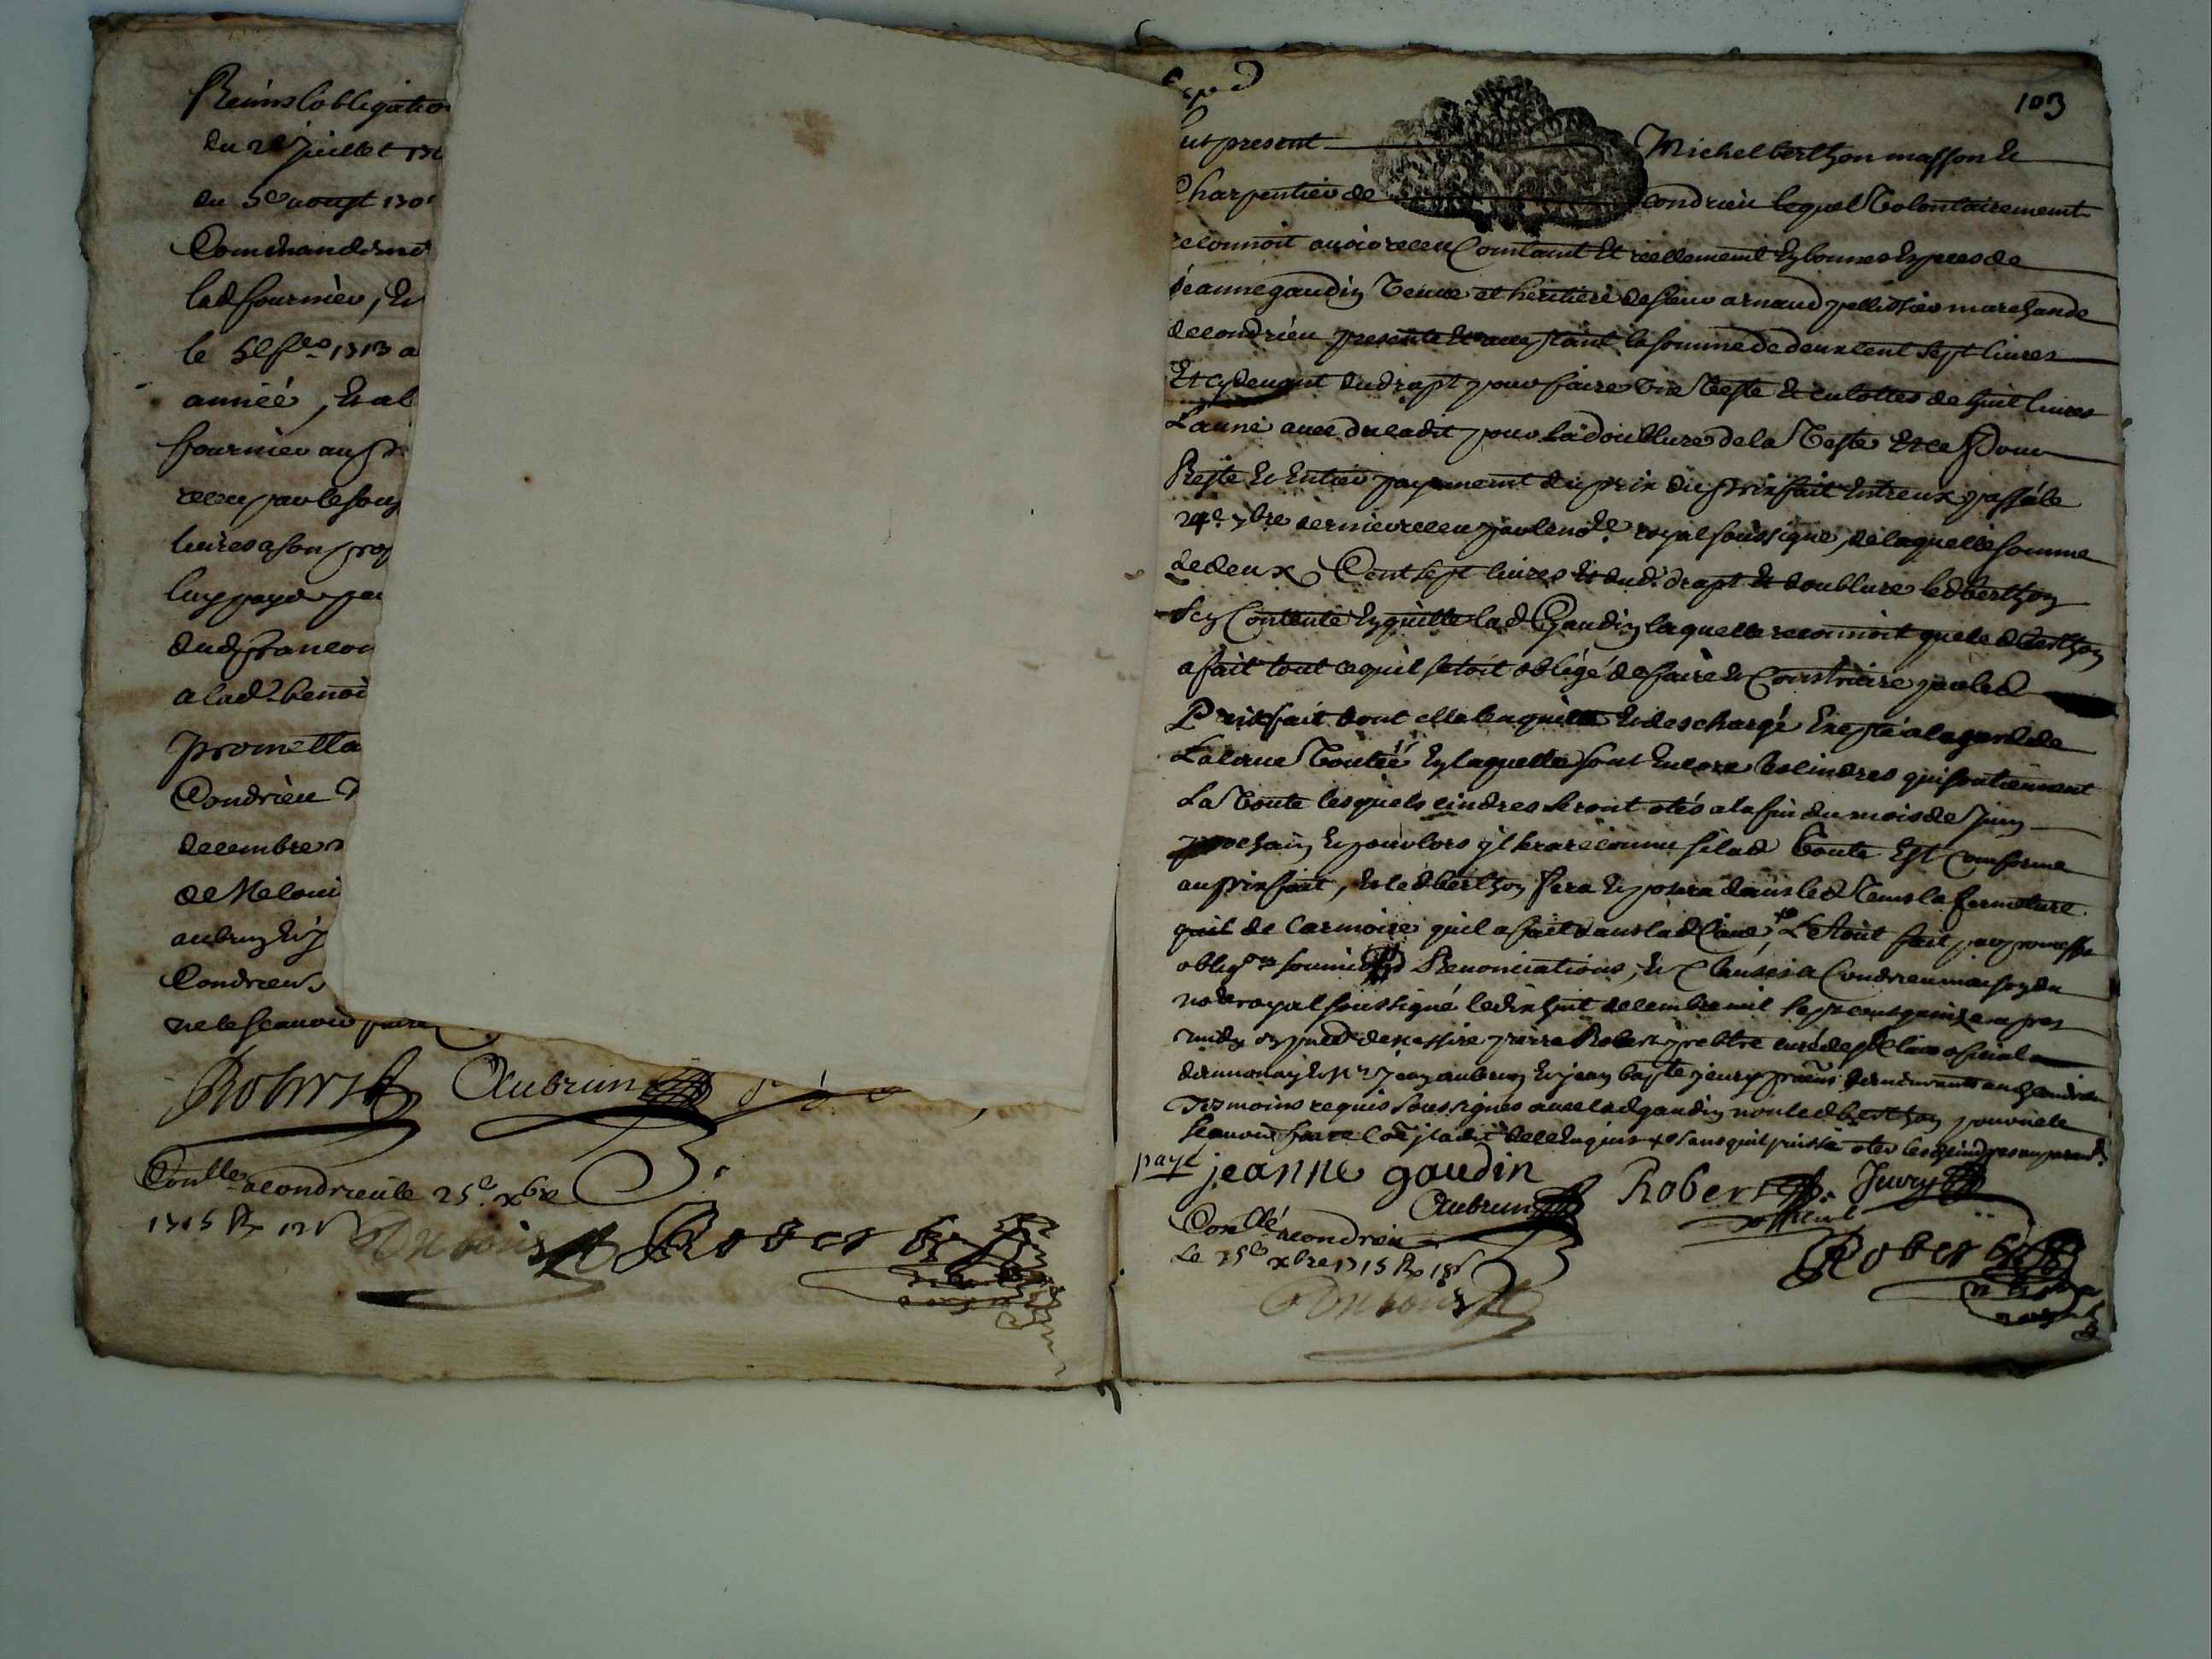 Reims lobligatio
du 2e juillet 170
du 5e aougt 1705
Commandeme
lad fournier, Et
le 5e 1713 a
année, Et al
fournier aussy
receu par le sous
livres a son prof
luy paye par
dud francou
a lad benoi
promettа
Condrieu
decembre
de Me loui
aubrun Et j
Condrieu
ne le scavoir faire
Robert Aubrun
Conllé a condrieu le 25e xbre
1715 Rx 12s
Dubois Robert
103
Exped
fut present Michel berthon masson Et
Charpentier de condrieu lequel Volontairement
reconnoit avoir receu Comtant Et reellement En bonnes Especes de
jeanne gaudin Veuve et heritiere de sieur arnaud pellissier marchande
de condrieu presente Et acceptant la somme de deux cent sept livres
Et cy devant du drapt pour faire Une Veste Et culottes de huit livres
Laune avec du cadit pour la doublure de la Veste Et ce pour
Reste Et Entier payement du prix du prixfait Entreux passé le
24e 7bre dernier receu par le nore royal soussigné, de laquelle somme
de deux Cent sept livres Et dud. drapt Et doublure led berthon
sen Contente En quitte lad Gaudin laquelle reconnoit que led berthon
a fait tout ce quil setoit obligé de faire Et Construire par led
Prixfait dont elle len quitte Et descharge Excepté a la garde de
La Cave Voutée En laquelle sont Encore les cindres qui soutiennent
La Voute lesquels cindres seront otés a la fin du mois de Juin
prochain Et pour lors jl sera reconnu si lad Voute Est Conforme
au prixfait, Et led berthon fera Et posera dans led Tems la fermeture
quil de larmoire quil a fait dans lad Cave, Le tout fait par promesse
obligons soumis Renonciations, Et Clauses a Condrieu maison du
nore royal soussigné le dix huit decembre mil sept cent quinze apres
midy En pnce de messire pierre Robert prebtre curé de oficial
dannonay Et Me jean aubrun Et jean bapte jeury praticiens demeurants aud Condrieu
Tesmoins requis soussignés avec lad gaudin non led berthon pour ne le
scavoir faire Come jl a dit de ce Enquis sans quil puisse oter les cindres auparavt.
payé jeanne gaudin
Aubrun Robert official Jeury
Conllé a condrieu
Le 25e xbre 1715 Rx 18s
Dubois
Robert
nore
royal